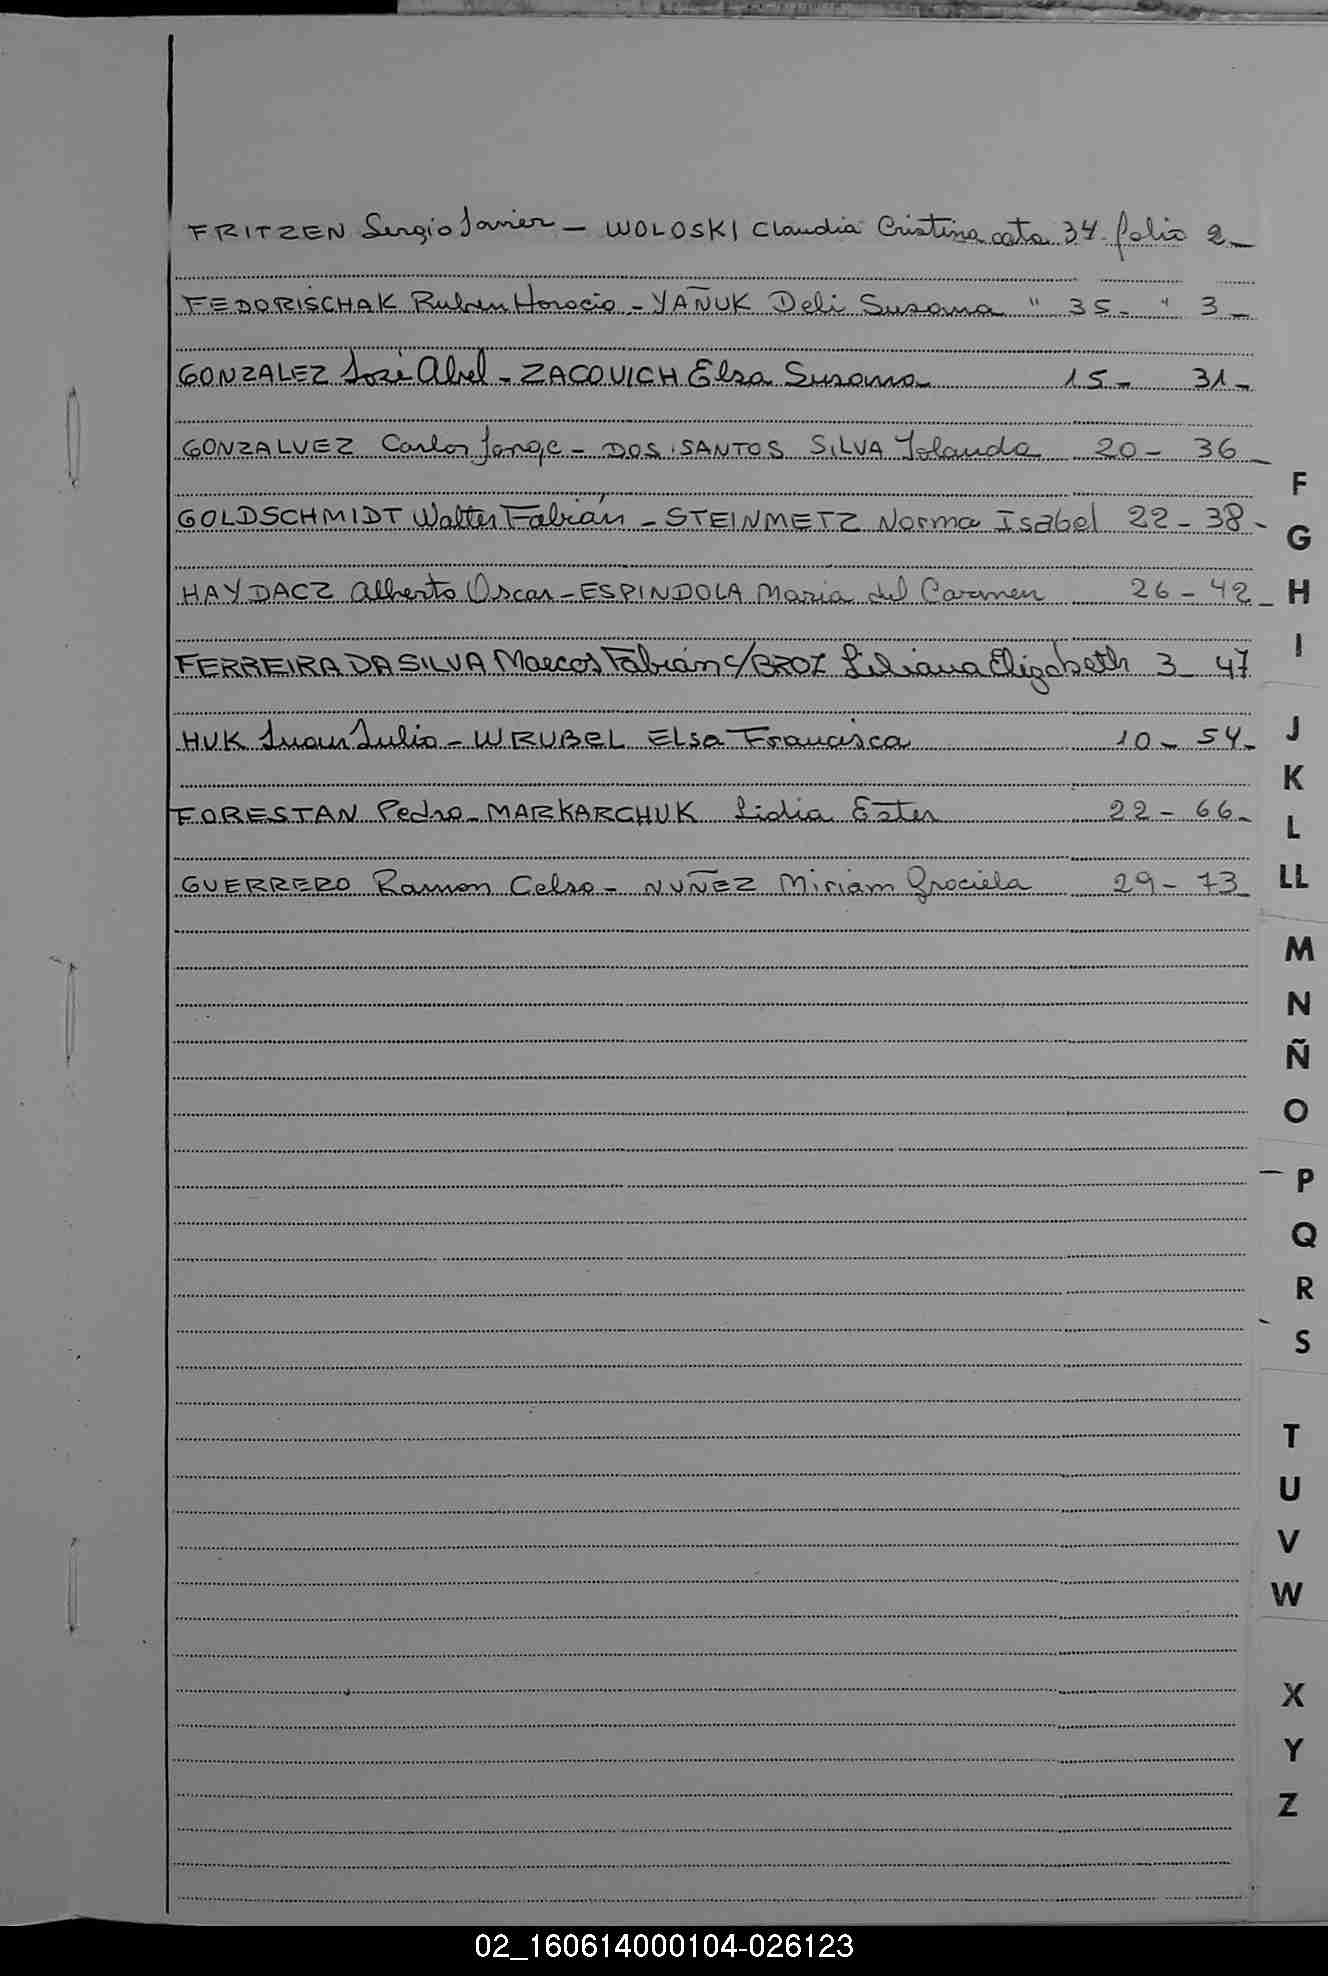 FRITZEN Sergio Javier - WOLOSKI Claudia Cristina acta 34 folio 2-
FEDORISCHAK Ruben Horacio - YAÑUK Deli Susana " 35- " 3-
GONZALEZ José Abel - ZACOVICH Elsa Susana 15- 31-
GONZALVEZ Carlos Jorge - DOS SANTOS SILVA Iolanda 20- 36-
GOLDSCHMIDT Walter Fabián - STEINMETZ Norma Isabel 22-38-
HAYDACZ Alberto Oscar - ESPINDOLA Maria del Carmen 26-42-
FERREIRA DA SILVA Marcos Fabián c/BROZ Liliana Elizabeth 3- 47
HUK Juan Julio - WRUBEL Elsa Francisca 10- 54-
FORESTAN Pedro - MARKARCHUK Lidia Ester 22- 66-
GUERRERO Ramon Celso - NUÑEZ Miriam Graciela 29- 73-
F
G
H
I
J
K
L
LL
M
N
Ñ
O
P
Q
R
S
T
U
V
W
X
Y
Z
02_160614000104-026123